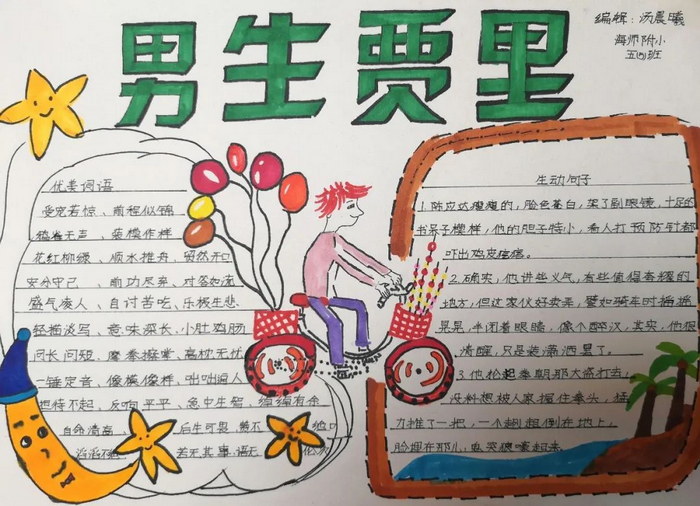 男生贾里
编辑：汤晨曦
海师附小
五四班
优美词语
受宠若惊、前程似锦
鸦雀无声、装模作样
花红柳绿、顺水推舟、贸然开口
安分守己、前功尽弃、对答如流
盛气凌人、自讨苦吃、乐极生悲
轻描淡写、意味深长、小肚鸡肠
问长问短、摩拳擦掌、高枕无忧
一锤定音、像模像样、咄咄逼人
担待不起、反响平平、急中生智、绰绰有余
自命清高、后生可恩
滔滔不绝 若无其事、语无伦次
生动句子
1.陈应达瘦瘦的，脸色苍白，架了副眼镜，十足的
书呆子模样，他的胆子特小，看人打预防针都
吓出鸡皮疙瘩。
2.确实，他讲些义气，有些值得奉理的
地方，但这家伙好卖弄，譬如骑车时摇摇
晃晃，半闭着眼睛，像个醉汉，其实，他很
清醒，只是装潇洒罢了。
3.他抡起拳朝那大高打去，
没料想被人家握住拳头，猛
力推了一把，一个趔趄倒在地上，
脸埋在那儿，